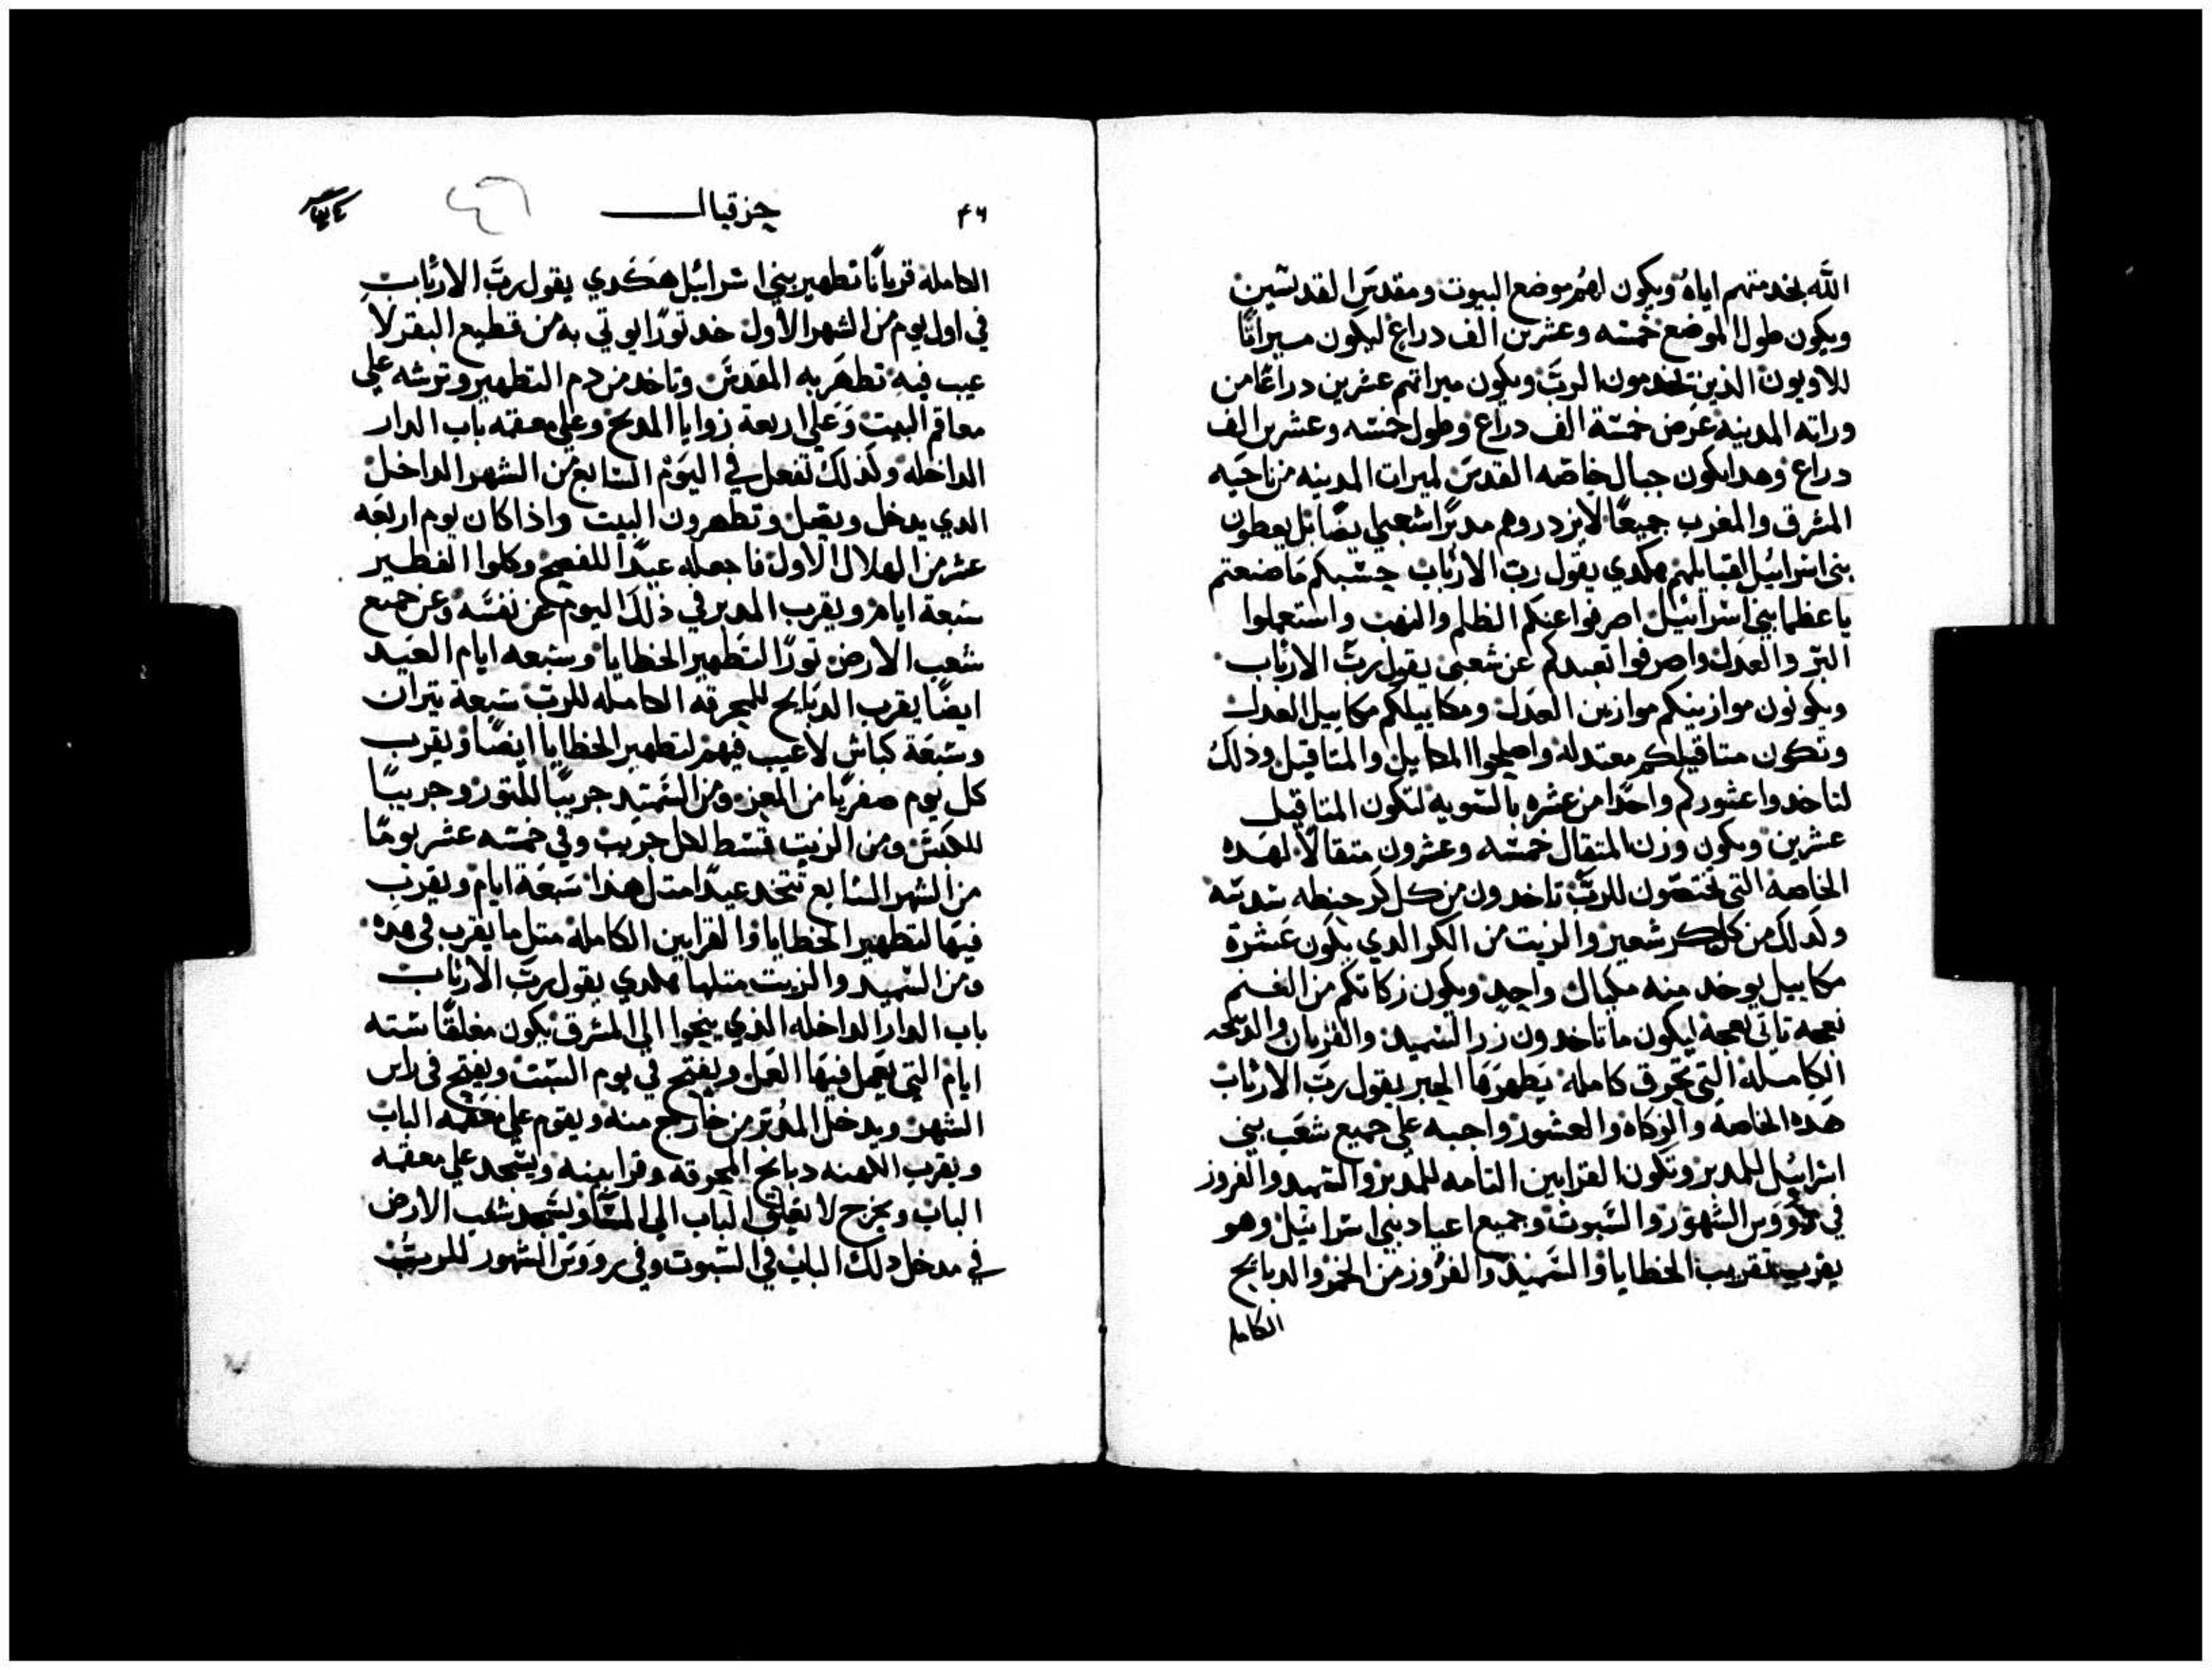 الله بخدمتهم اياه ويكون لهم موضع البيوت ومقدس القدسين
ويكون طول الموضع خمسه وعشرين الف دراع ليكون ميراتا
للاويون الذين يخدمون الرب ويكون ميراتهم عشرين دراعا من
وراته المدينه عرض خمسة الف دراع وطول خمسه وعشرين الف
دراع وهدا يكون جبال خاصه القدس لميرات المدينه من ناحيه
المشرق والمغرب جميعا لا يزدروهم مدبرا شعبي ايضا بل يعطون
بني اسرائيل لقبايلهم هكدي يقول رب الارباب حسبكم ما صنعتم
يا عظما بني اسرائيل اصرفوا عنكم الظلم والنهب واستعملوا
البر والعدل واصرفوا تعبدكم عن شعبي يقول رب الارباب
ويكونون موازينكم موازين العدل ومكاييلكم مكاييل العدل
وتكون متاقيلكم معتدله واصلحوا المكاييل والمتاقيل ودلك
لتاخدوا عشوركم واحدا من عشره بالسويه لتكون المتاقيل
عشرين ويكون وزن المتقال خمسه وعشرون متقالا لهده
الخاصه التي تختصون للرب تاخدون من كل كر حنطه سدسه
ولدلك من كل كر شعير والزيت من الكر الدي يكون عشرة
مكاييل يوخد منه مكيال واحد ويكون زكاتكم من الغنم
نعجه تاتي نعجه ليكون ما تاخدون زد السميد والقربان والدبيحه
الكامله التي تحرق كامله يطهرها الحبر يقول رب الارباب
هده الخاصه والزكاه والعشور واجبه علي جميع شعب بني
اسرائيل للمدبر وتكون القرابين التامه للمدبر والسميد والفروز
في رووس الشهور والسبوت وجميع اعياد بني اسرائيل وهو
يقرب تقريب الخطايا والسميد والفروز من الخمر والدبايح
الكامله
٤٦ حزقيال
الكامله قربانا تطهير بني اسرائيل هكدي يقول رب الارباب
في اول يوم من الشهر الاول خد تورا يوتي به من قطيع البقر لا
عيب فيه تطهر به المقدس وتاخد من دم التطهير وترشه علي
معاقم البيت وعلي اربعة زوايا المدبح وعلي معقمه باب الدار
الداخله ولدلك تفعل في اليوم السابع من الشهر الداخل
الدي يدخل ويقبل وتطهرون البيت واذا كان يوم اربعه
عشر من الهلال الاول فاجعله عيدا للفصح وكلوا الفطير
سبعة ايام ويقرب المدبر في ذلك اليوم عن نفسه وعن جميع
شعب الارض تورا لتطهير الخطايا وسبعه ايام العيد
ايضا يقرب الدبايح للمحرقه الكامله للرب سبعة تيران
وسبعة كباش لا عيب فيهم لتطهير الخطايا ايضا ويقرب
كل يوم صفريا من المعز ومن السميد جريبا للتور وجريبا
للكبش ومن الزيت قسط لكل جريب وفي خمسه عشر يوما
من الشهر السابع تتخد عيدا متل هدا سبعة ايام ويقرب
فيها لتطهير الخطايا والقرابين الكامله متل ما يقرب في هده
ومن السميد والزيت متلها هكدي يقول رب الارباب
باب الدار الداخله الذي ينحوا الي المشرق يكون مغلقا سته
ايام التي يعمل فيها العمل ويفتح في يوم السبت ويفتح في راس
الشهر ويدخل المدبر من خارج منه ويقوم علي معقمه الباب
ويقرب الكهنه دبايح المحرقه وقرابينه ويسجد علي معقمه
الباب ويخرج لا يغلق الباب الي المسا ويسجد شعب الارض
في مدخل دلك الباب في السبوت وفي رووس الشهور للرب